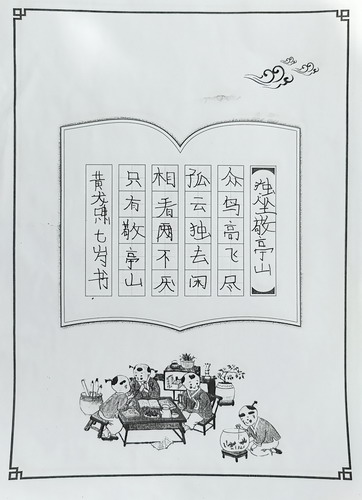 独坐敬亭山
众鸟高飞尽
孤云独去闲
相看两不厌
只有敬亭山
黄 七岁书